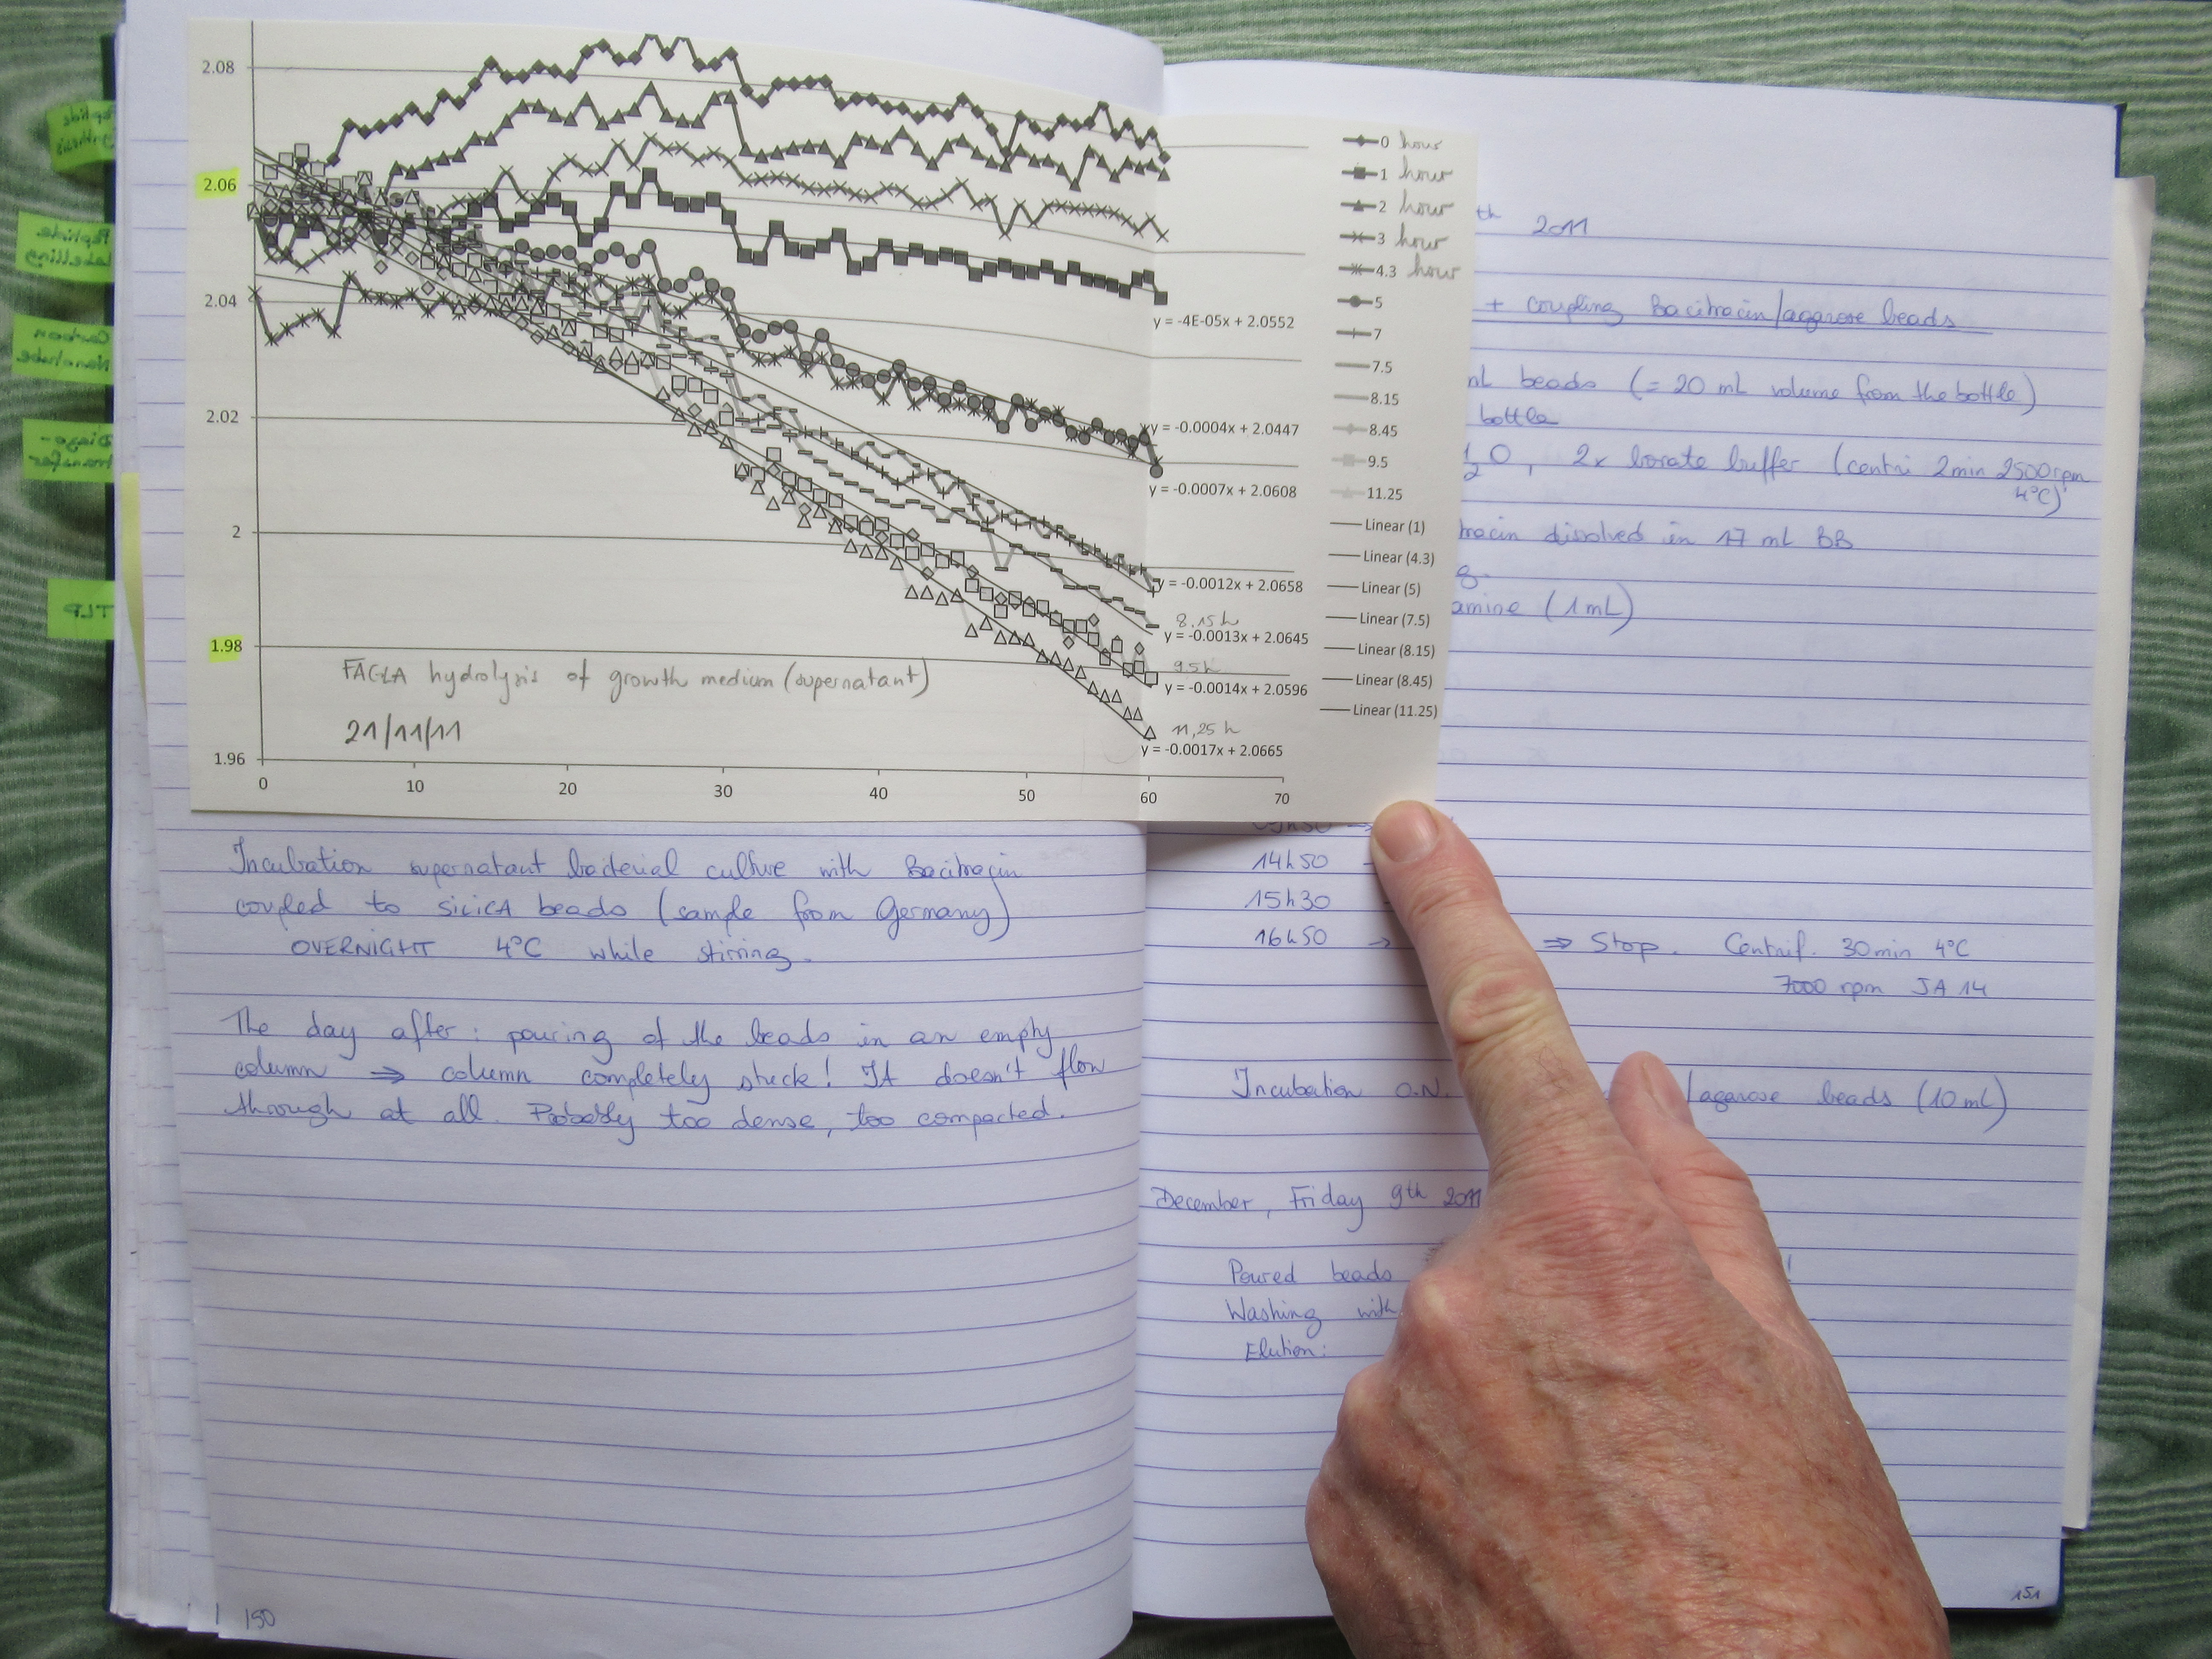 2.08
2.06
2.04
2.02
2
1.98
1.96
0
10
20
30
40
50
60
70
y = -4E-05x + 2.0552
y = -0.0004x + 2.0447
y = -0.0007x + 2.0608
y = -0.0012x + 2.0658
8.15h
y = -0.0013x + 2.0645
9.5h
y = -0.0014x + 2.0596
11,25 h
y = -0.0017x + 2.0665
FAGLA hydrolysis of growth medium (supernatant)
21/11/11
0 hour
1 hour
2 hour
3 hour
4.3 hour
5
7
7.5
8.15
8.45
9.5
11.25
Linear (1)
Linear (4.3)
Linear (5)
Linear (7.5)
Linear (8.15)
Linear (8.45)
Linear (11.25)
Incubation supernatant bacterial culture with Bacitracin
coupled to SILICA beads (sample from Germany)
OVERNIGHT 4°C while stirring.
The day after: pouring of the beads in an empty
column ⇒ column completely stuck! It doesn't flow
through at all. Probably too dense, too compacted.
150
th 2011
+ coupling Bacitracin/agarose beads
mL beads (= 20 mL volume from the bottle)
bottle
2O, 2x borate buffer (centri 2min 2500rpm
4°C)
dissolved in 17 mL BB
amine (1mL)
14h50
15h30
16h50 → ⇒ Stop. Centrif. 30min 4°C
7000 rpm JA 14
Incubation O.N. /agarose beads (10mL)
December, Friday 9th 2011
Poured beads !
Washing with
Elution:
151
Peptide
Labelling
Carbon
Nanotube
Diazo-
transfer
TLP